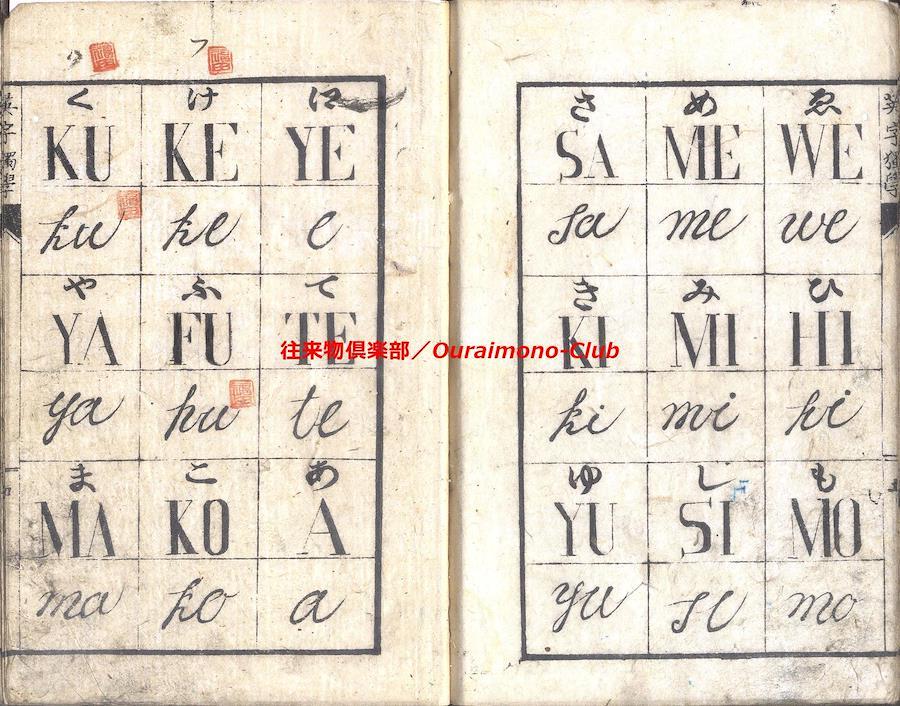 英字獨學
く け 江
KU KE YE
ku ke e
や ふ て
YA FU TE
ya hu te
ま こ あ
MA KO A
ma ko a
さ め ゑ
SA ME WE
sa me we
き み ひ
KI MI HI
ki mi hi
ゆ し も
YU SI MO
yu si mo
英字獨學
往来物倶楽部／Ouraimono-Club